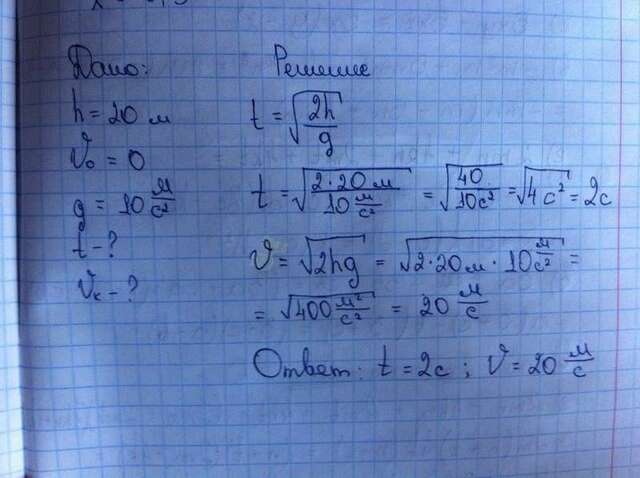 Дано:
h = 20 м
V₀ = 0
g = 10 м/с²
t - ?
Vк - ?
Решение
t = √(2h/g)
t = √(2·20 м / 10 м/с²) = √(40/10с²) = √(4 с²) = 2с
V = √(2hg) = √(2·20м·10 м/с²) =
= √(400 м²/с²) = 20 м/с
Ответ: t = 2с ; V = 20 м/с